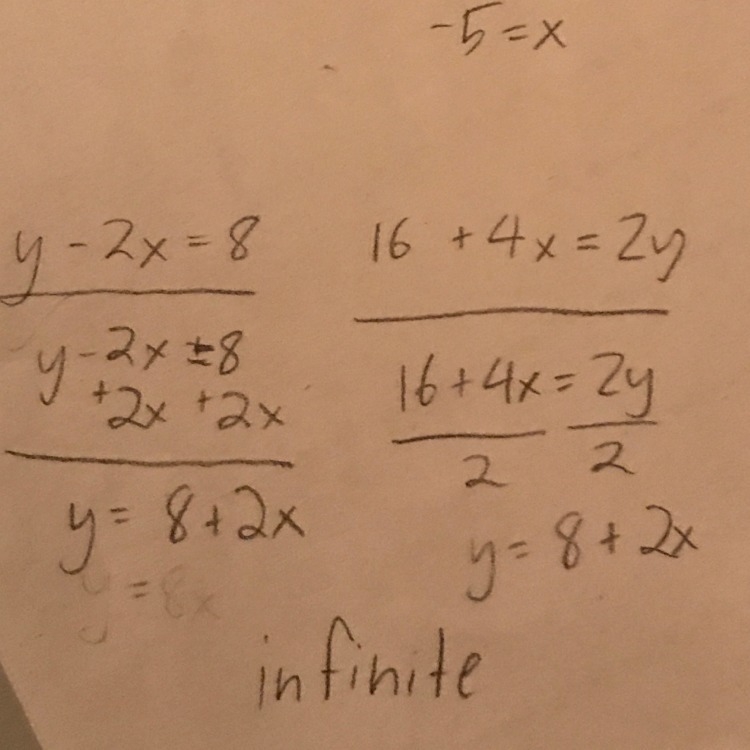 -5=x
y - 2x = 8
y - 2x = 8
+2x +2x
y = 8 + 2x
y = 8x
16 + 4x = 2y
16 + 4x = 2y
2 2
y = 8 + 2x
infinite